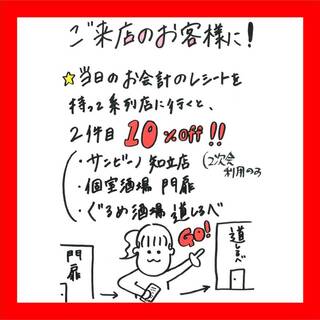 ご来店のお客様に!
☆当日のお会計のレシートを
持って系列店に行くと、
2件目 10%off!!
・サンビーノ 知立店 (2次会
利用のみ
・個室酒場 門扉
・ぐるめ酒場 道しるべ
GO!
門扉
道しるべ